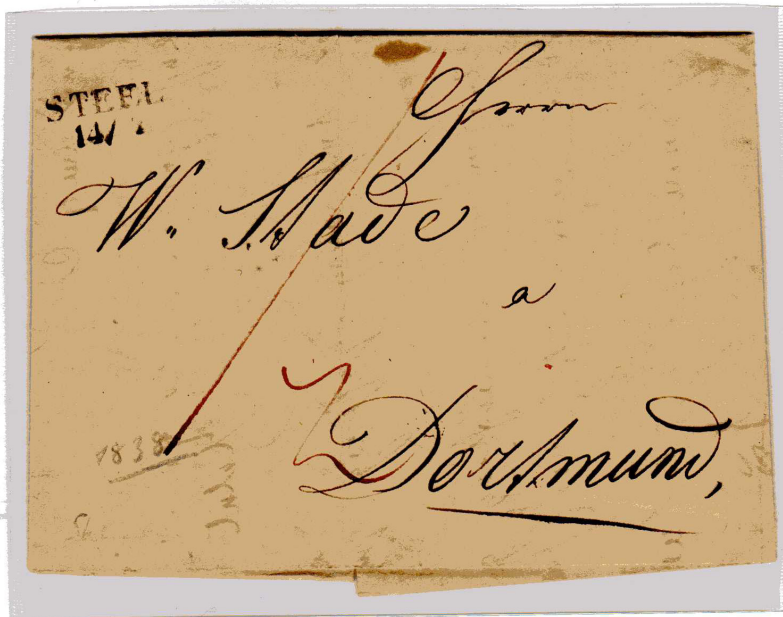 STEEL
14/7
Herrn
W. Stade
a
Dortmund,
1838